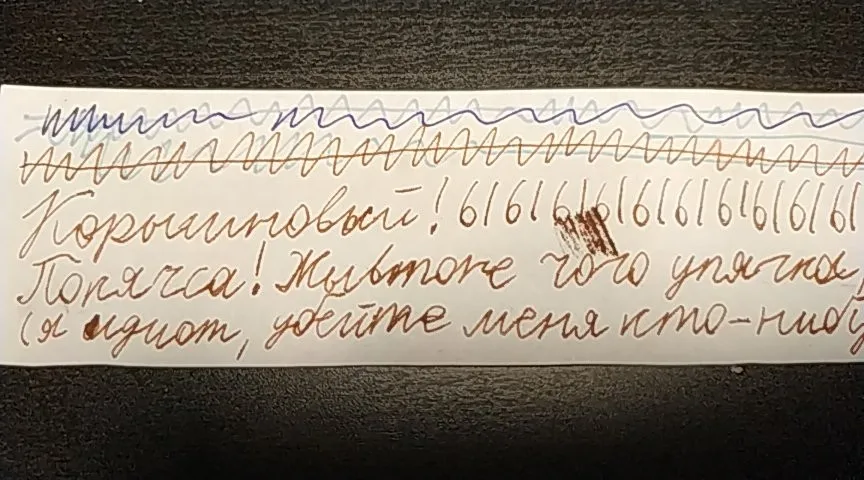 Коришневый! 6161616161616161
Попячса! Жывтоне чочо упячка
(я идиот, убейте меня кто-нибу